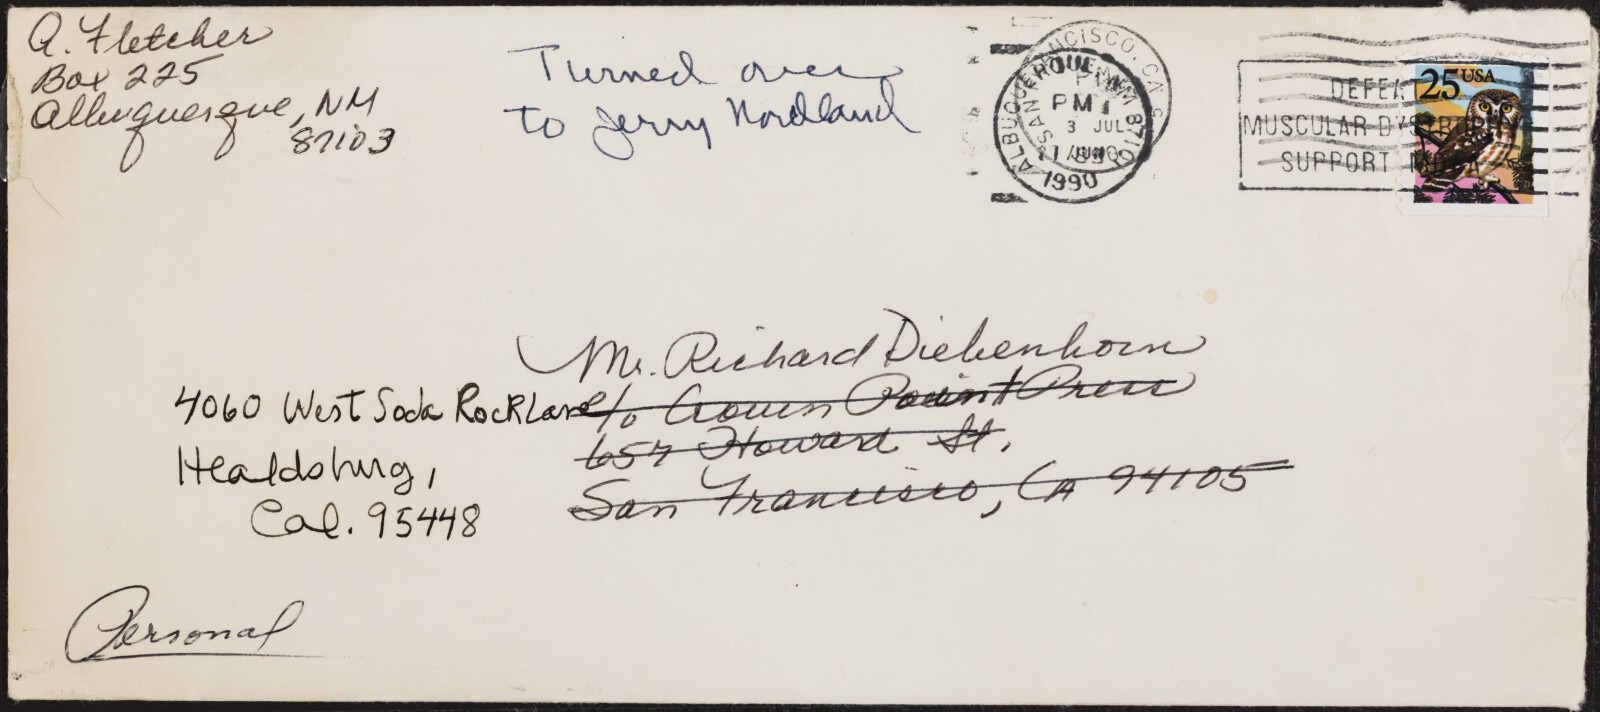 A. Fletcher
Box 225
Albuquerque, NM
87103
Turned over
to Jerry Nordland
SAN FRANCISCO, CA
ALBUQUERQUE NM 8710
PM
3 JUL
1990
DEFEAT
MUSCULAR DYSTROPHY
SUPPORT MDA
25 USA
Mr. Richard Diebenkorn
c/o Crown Point Press
657 Howard St.
San Francisco, CA 94105
4060 West Soda Rock Lane
Healdsburg,
Cal. 95448
Personal